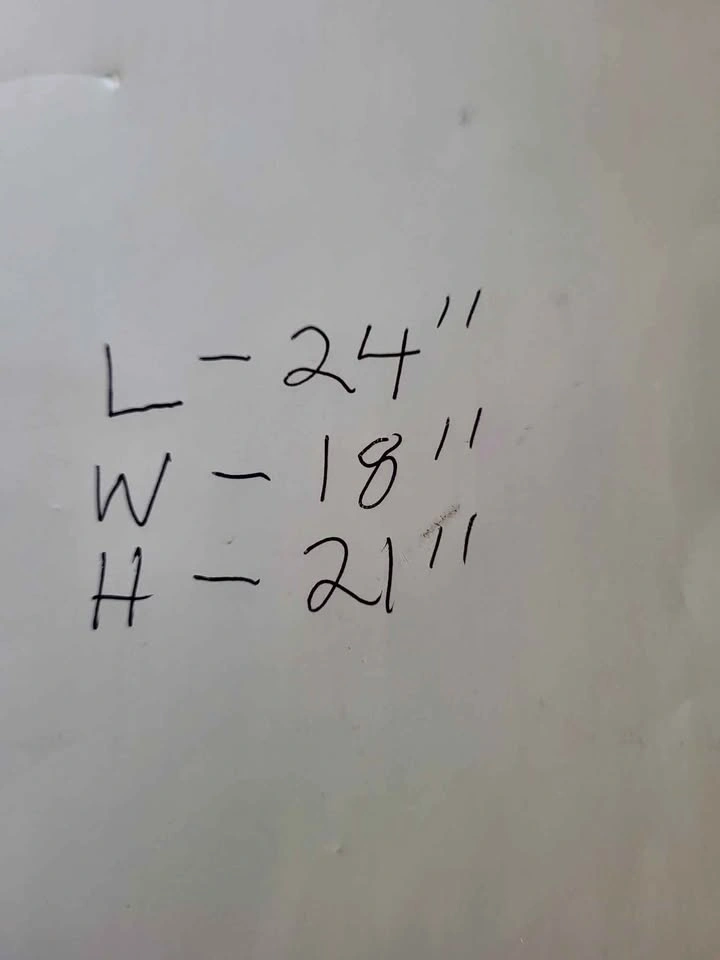 L - 24"
W - 18"
H - 21"